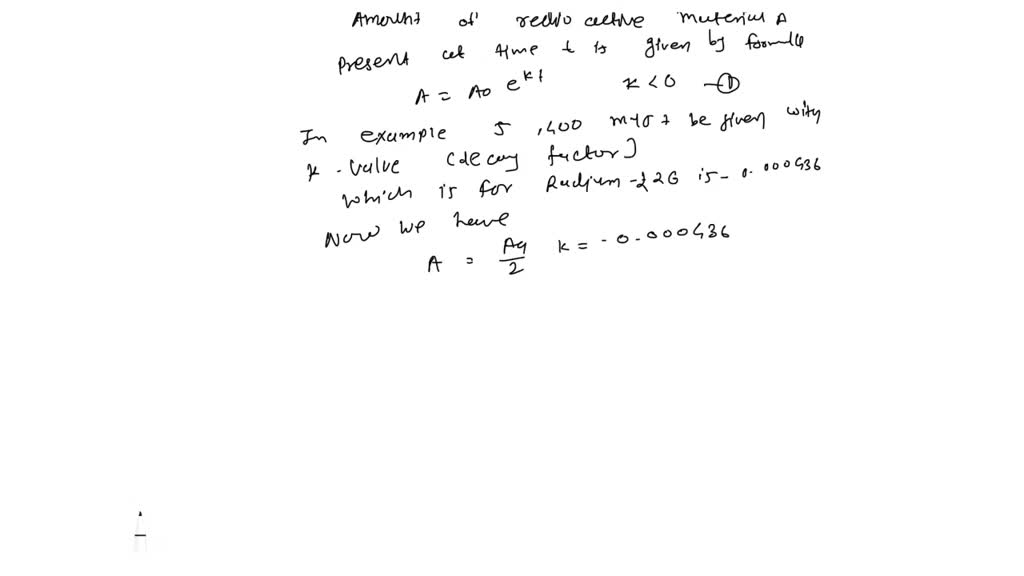 Amount of radio active material A
present at time t is given by formula
A = A0 e^kt K < 0 —①
In example 5, you must be given with
k-value (decay factor)
which is for Radium-226 is -0.000436
Now we have
A = A0/2 k = -0.000436